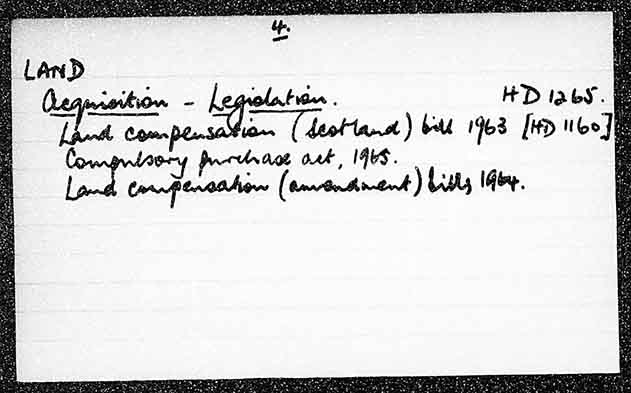 4.
LAND
Acquisition - Legislation. HD 1265.
Land compensation (Scotland) bill 1963 [HD 1160]
Compulsory purchase act, 1965.
Land compensation (amendment) bills 1964.